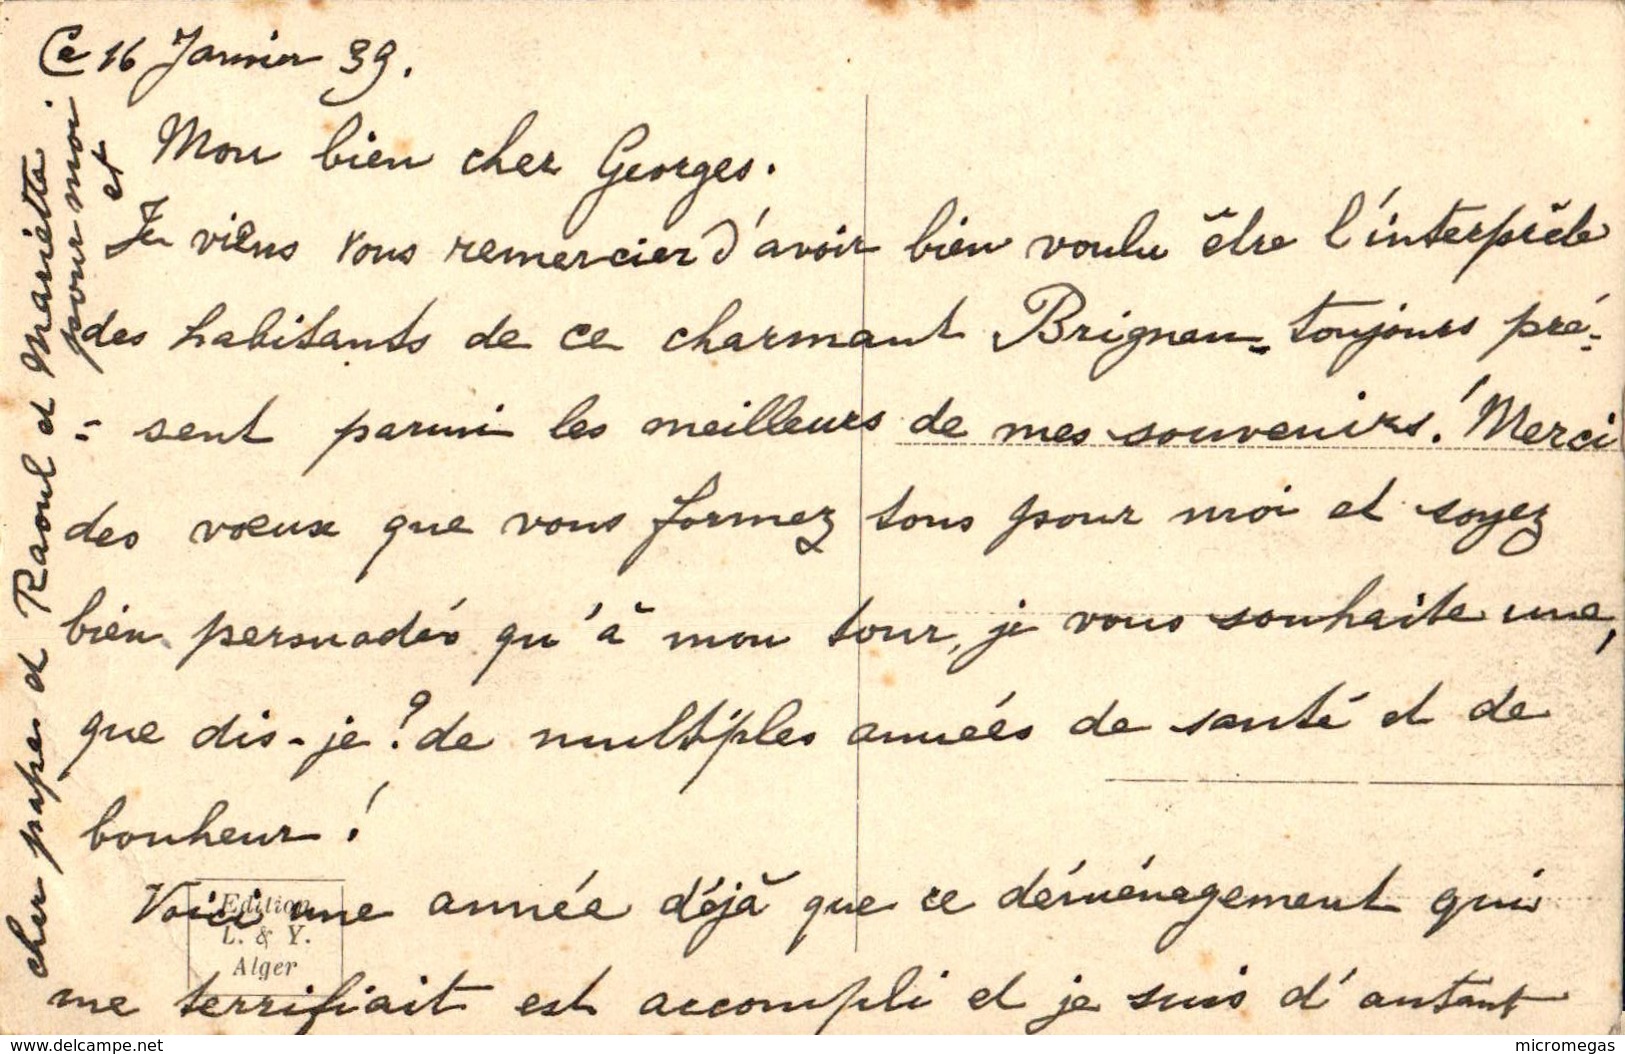 Ce 16 Janvier 39.
Mon bien cher Georges.
Je viens vous remercier d'avoir bien voulu être l'interprète
des habitants de ce charmant Brignau = toujours pré-
= sent parmi les meilleurs de mes souvenirs! Merci
des vœux que vous formez tous pour moi et soyez
bien persuadés qu'à mon tour, je vous souhaite une,
que dis-je? de multiples années de santé et de
bonheur!
Voici une année déjà que ce déménagement qui
me terrifiait est accompli et je suis d'autant
cher papa et Raoul et Marietta.
pour moi
et
Edition
L. & Y.
Alger
www.delcampe.net
micromegas